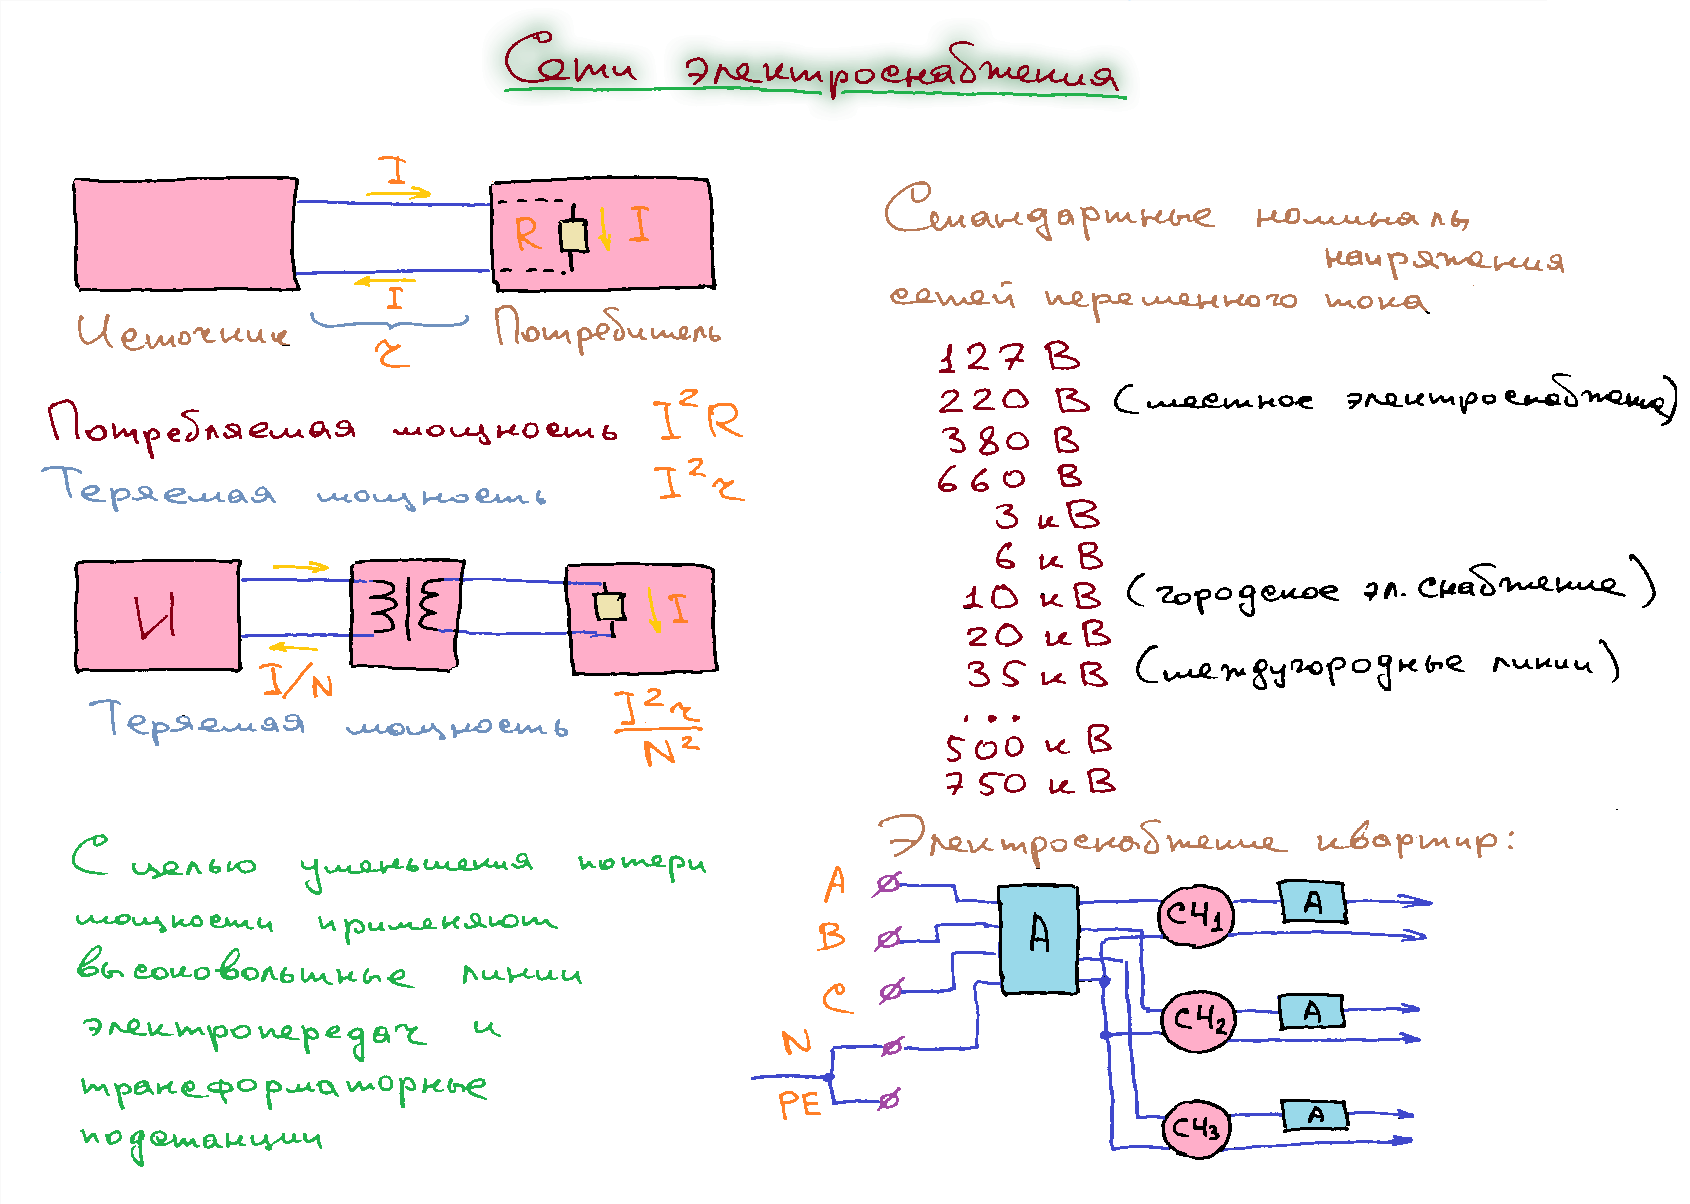 Сети электроснабжения
I
R
I
I
Источник
r
Потребитель
Потребляемая мощность I²R
Теряемая мощность I²r
И
I
I/N
Теряемая мощность I²r/N²
С целью уменьшения потери
мощности применяют
высоковольтные линии
электропередач и
трансформаторные
подстанции
Стандартные номиналь
напряжения
сетей переменного тока
127 В
220 В (местное электроснабжение)
380 В
660 В
3 кВ
6 кВ
10 кВ (городское эл. снабжение)
20 кВ
35 кВ (междугородные линии)
...
500 кВ
750 кВ
Электроснабжение квартир:
A
B
C
N
PE
А
СЧ1
А
СЧ2
А
СЧ3
А